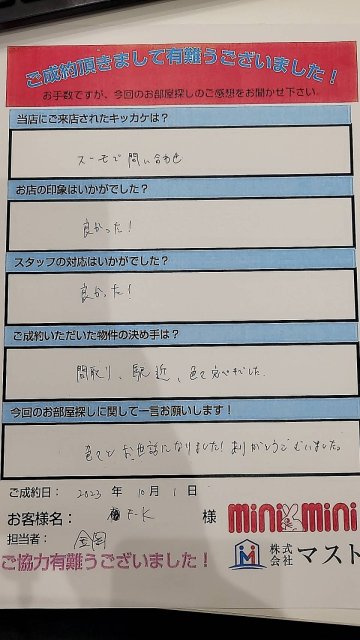 ご成約頂きまして有難うございました！
お手数ですが、今回のお部屋探しのご感想をお聞かせ下さい。
当店にご来店されたキッカケは？
スーモで問い合わせ
お店の印象はいかがでした？
良かった！
スタッフの対応はいかがでした？
良かった！
ご成約いただいた物件の決め手は？
間取り、駅近、
今回のお部屋探しに関して一言お願いします！
お世話になりました！ありがとうございました。
ご成約日： 2023 年 10月 1 日
お客様名： F.K 様
担当者：
mini mini
株式会社 マスト
ご協力有難うございました！